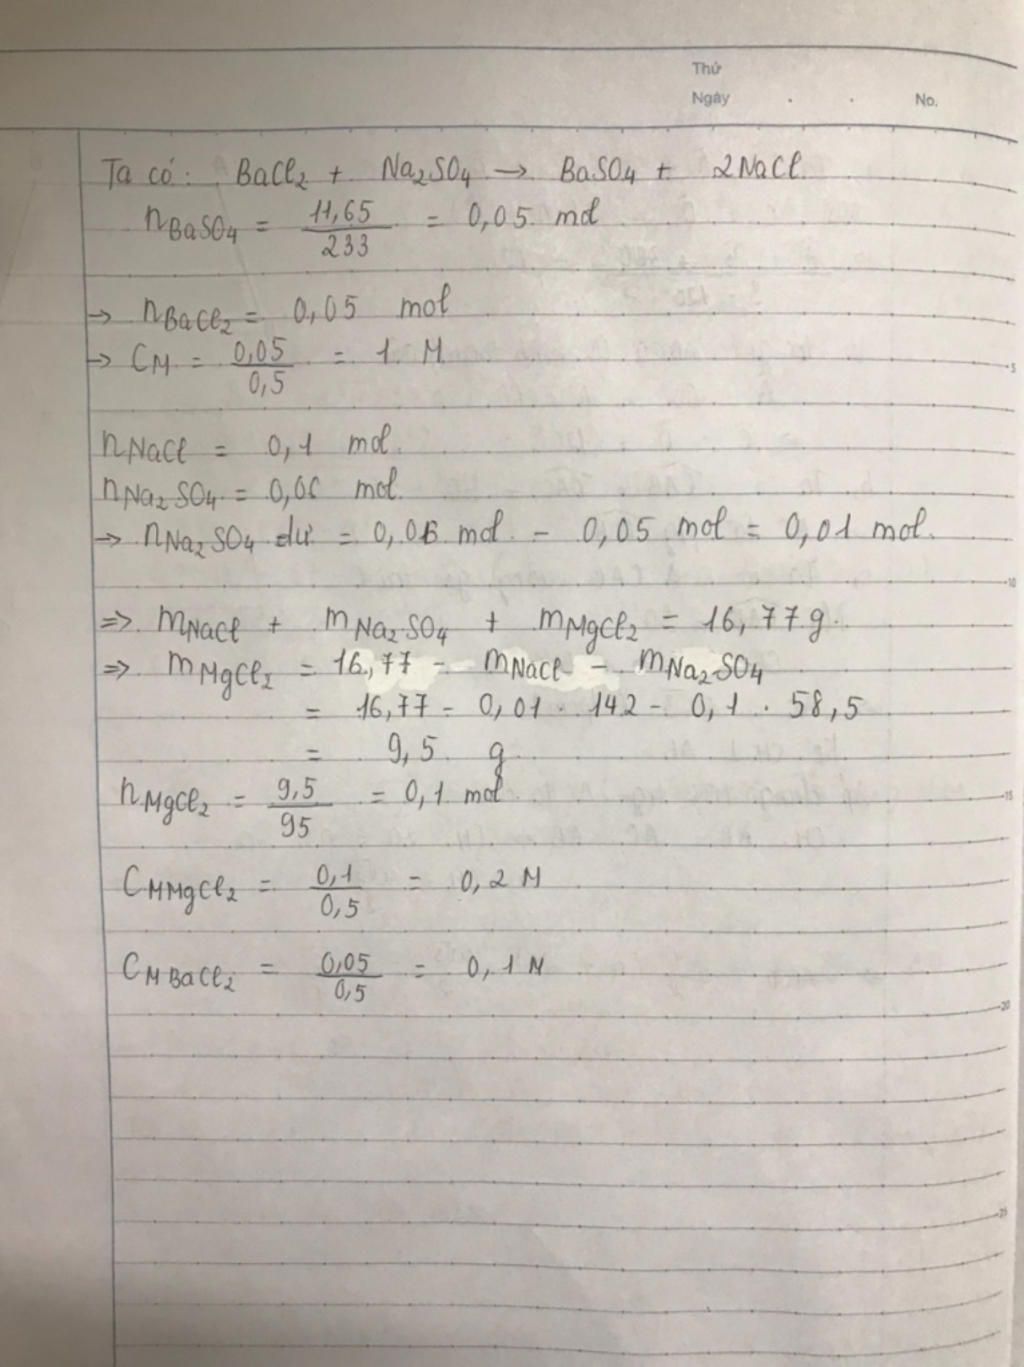 Thứ
Ngày . . No.
Ta có: BaCl₂ + Na₂SO₄ → BaSO₄ + 2NaCl
nBaSO₄ = 11,65 / 233 = 0,05 mol
→ nBaCl₂ = 0,05 mol
→ CM = 0,05 / 0,5 = 1 M
5
nNaCl = 0,1 mol.
nNa₂SO₄ = 0,06 mol
→ nNa₂SO₄ dư = 0,06 mol - 0,05 mol = 0,01 mol.
10
=> mNaCl + mNa₂SO₄ + mMgCl₂ = 16,77g.
=> mMgCl₂ = 16,77 - mNaCl - mNa₂SO₄
= 16,77 - 0,01 . 142 - 0,1 . 58,5
= 9,5 g
nMgCl₂ = 9,5 / 95 = 0,1 mol
15
CMMgCl₂ = 0,1 / 0,5 = 0,2 M
CMBaCl₂ = 0,05 / 0,5 = 0,1 M
20
25